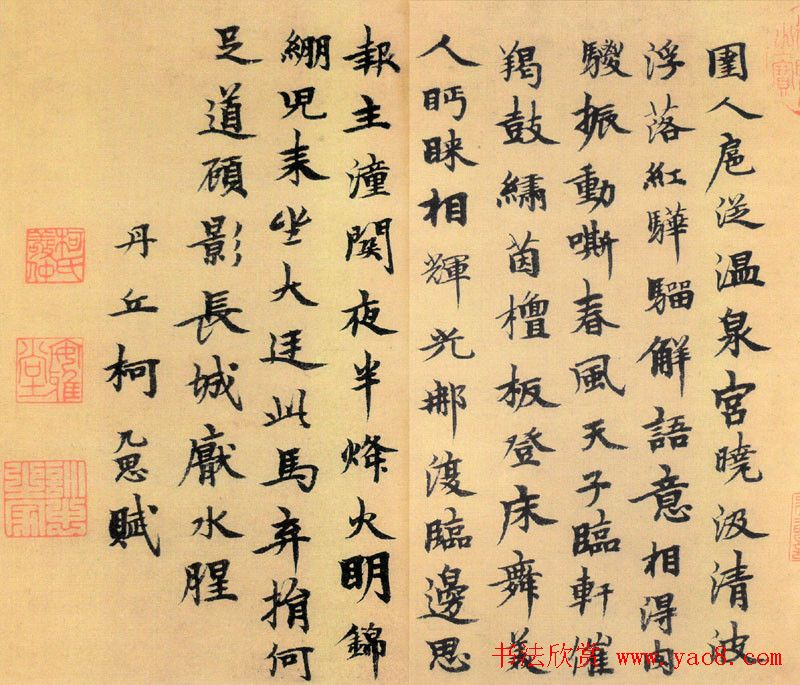 圉人扈從温泉宮曉汲清波
浮落紅驊騮解語意相得肉
騣振動嘶春風天子臨軒催
羯鼓繡茵檀板登床舞美
人眄睞相輝光那復臨邊思
報主潼関夜半烽火明錦
綳兒来坐大廷此馬弃捐何
足道顧影長城厭水腥
丹丘柯九思賦
柯氏敬仲
书法欣赏 www.yao8.com